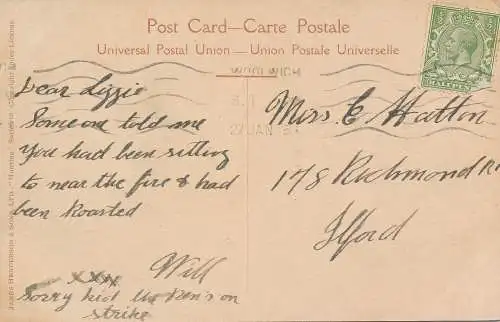 Post Card—Carte Postale
Universal Postal Union—Union Postale Universelle
WOOLWICH
27 JAN
Dear Lizzie
Someone told me
You had been sitting
to near the fire & had
been Roasted
Will
xxx
Sorry kid the Pen's on
strike
Miss E Hatton
178 Richmond Rd
Ilford